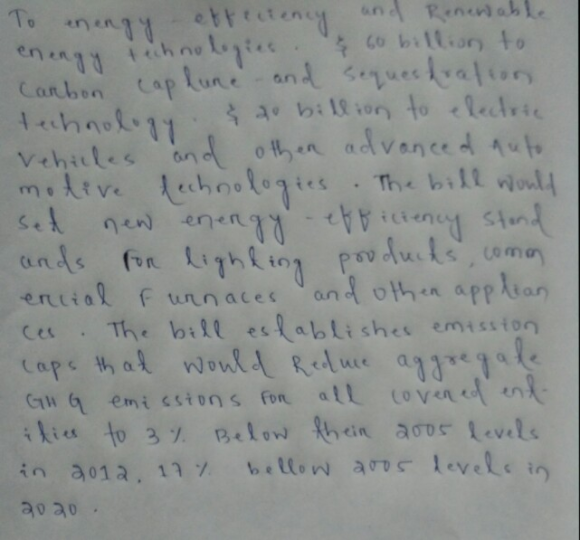 To energy-efficiency and Renewable
energy technologies. $ 60 billion to
Carbon capture and sequestration
technology. $ 20 billion to electric
vehicles and other advanced auto
motive technologies. The bill would
set new energy-efficiency stand
ards for lighting products, comm
ercial Furnaces and other applian
ces. The bill establishes emission
caps that would Reduce aggregate
GHG emissions for all covered ent-
ities to 3% Below their 2005 levels
in 2012, 17% bellow 2005 levels in
2020.